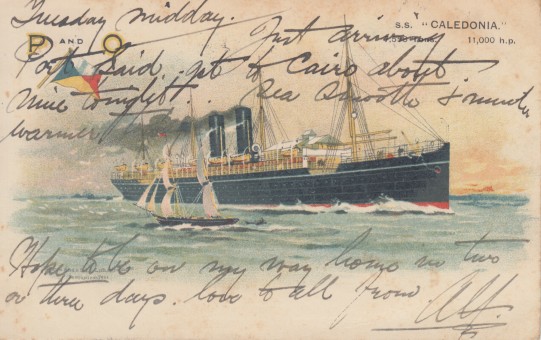 Tuesday midday. Just arriving
P AND O
S.S. "CALEDONIA."
11,000 h.p.
Port Said, get to Cairo about
nine tonight. Sea smooth & much
warmer
Hope to be on my way home in two
or three days. love to all from
Alf.